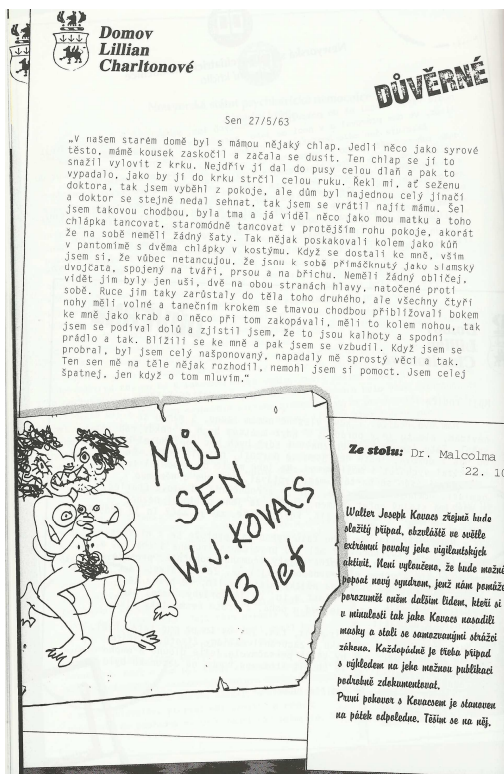 Domov
Lillian
Charltonové
DŮVĚRNÉ
Sen 27/5/63
„V našem starém domě byl s mámou nějaký chlap. Jedli něco jako syrové
těsto, mámě kousek zaskočil a začala se dusit. Ten chlap se jí to
snažil vylovit z krku. Nejdřív jí dal do pusy celou dlaň a pak to
vypadalo, jako by jí do krku strčil celou ruku. Řekl mi, ať seženu
doktora, tak jsem vyběhl z pokoje, ale dům byl najednou celý jinačí
a doktor se stejně nedal sehnat, tak jsem se vrátil najít mámu. Šel
jsem takovou chodbou, byla tma a já viděl něco jako mou matku a toho
chlápka tancovat, staromódně tancovat v protějším rohu pokoje, akorát
že na sobě neměli žádný šaty. Tak nějak poskakovali kolem jako kůň
v pantomimě s dvěma chlápky v kostýmu. Když se dostali ke mně, vším
jsem si, že vůbec netancujou, že jsou k sobě přimáčknutý jako siamský
dvojčata, spojený na tváři, prsou a na břichu. Neměli žádný obličej,
vidět jim byly jen uši, dvě na obou stranách hlavy, natočené proti
sobě. Ruce jim taky zarůstaly do těla toho druhého, ale všechny čtyři
nohy měli volné a tanečním krokem se tmavou chodbou přibližovali bokem
ke mně jako krab a o něco při tom zakopávali, měli to kolem nohou, tak
jsem se podíval dolů a zjistil jsem, že to jsou kalhoty a spodní
prádlo a tak. Blížili se ke mně a pak jsem se vzbudil. Když jsem se
probral, byl jsem celý našponovaný, napadaly mě sprostý věci a tak.
Ten sen mě na těle nějak rozhodil, nemohl jsem si pomoct. Jsem celej
špatnej, jen když o tom mluvím."
MŮJ
SEN
W.J. KOVACS
13 let
Ze stolu: Dr. Malcolma
22. 10
Walter Joseph Kovacs zřejmě bude
složitý případ, obzvláště ve světle
extrémní povahy jeho vigilantských
aktivit. Není vyloučeno, že bude možné
popsat nový syndrom, jenž nám pomůže
porozumět oněm dalším lidem, kteří si
v minulosti tak jako Kovacs nasadili
masky a stali se samozvanými strážci
zákona. Každopádně je třeba případ
s výhledem na jeho možnou publikaci
podrobně zdokumentovat.
První pohovor s Kovacsem je stanoven
na pátek odpoledne. Těším se na něj.